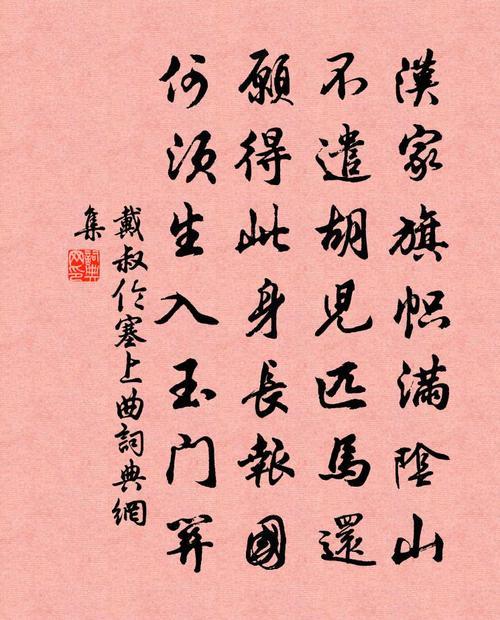 漢家旗幟滿陰山
不遣胡兒匹馬還
願得此身長報國
何須生入玉門關
戴叔伦塞上曲詞典網
集